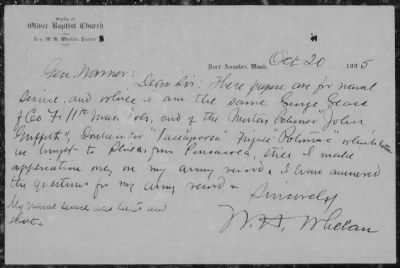 Study of
Olivet Baptist Church
Rev. W. H. Whelan Pastor
Port Angeles, Wash. Oct 20 1905
Gen. Warner:
Dear Sir: These papers are for naval
service, and where I am the same George
of Co F. 11th Mass Vols, and of the Mortar Schooner "John
Griffith", "Tallapoosa" Frigate "Potomac" which latter
we brought to Phila. from Pensacola, etc. I made
application only on my army record & I have answered
the questions for my army record &
Sincerely
My naval service was and
W. H. Whelan